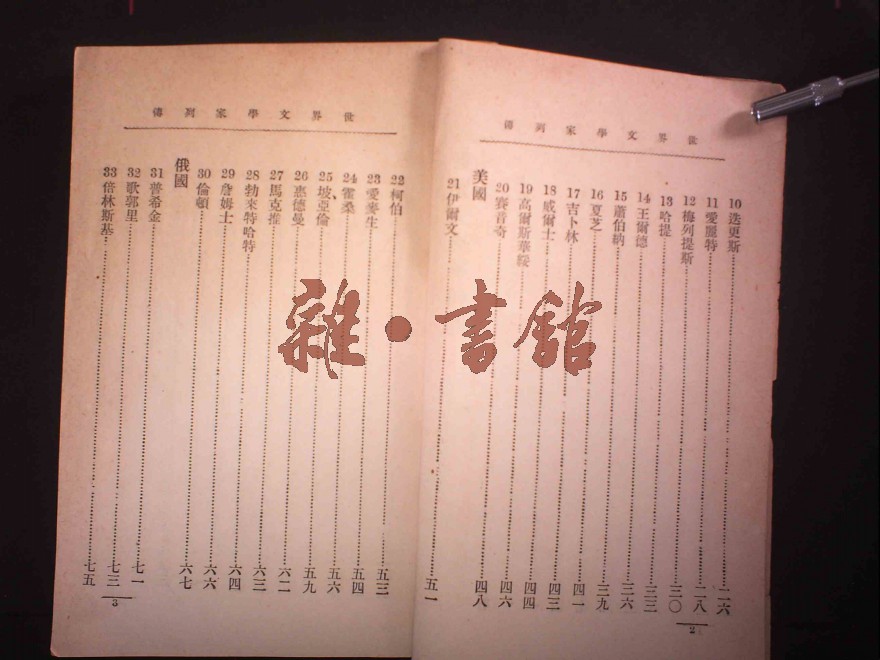 世界文學家列傳
10 迭更斯……二六
11 愛麗特……二八
12 梅列提斯……三〇
13 哈提……三三
14 王爾德……三六
15 蕭伯納……三九
16 夏芝……四一
17 吉卜林……四三
18 威爾士……四四
19 高爾斯華綏……四六
20 賽音奇……四八
美國
21 伊爾文……五一
2
世界文學家列傳
22 柯伯……五三
23 愛麥生……五四
24 霍桑……五六
25 坡亞倫……五九
26 惠德曼……六二
27 馬克推……六三
28 勃來特哈特……六四
29 詹姆士……六六
30 倫頓……六七
俄國
31 普希金……七一
32 歌郭里……七三
33 倍林斯基……七五
3
雜·書館